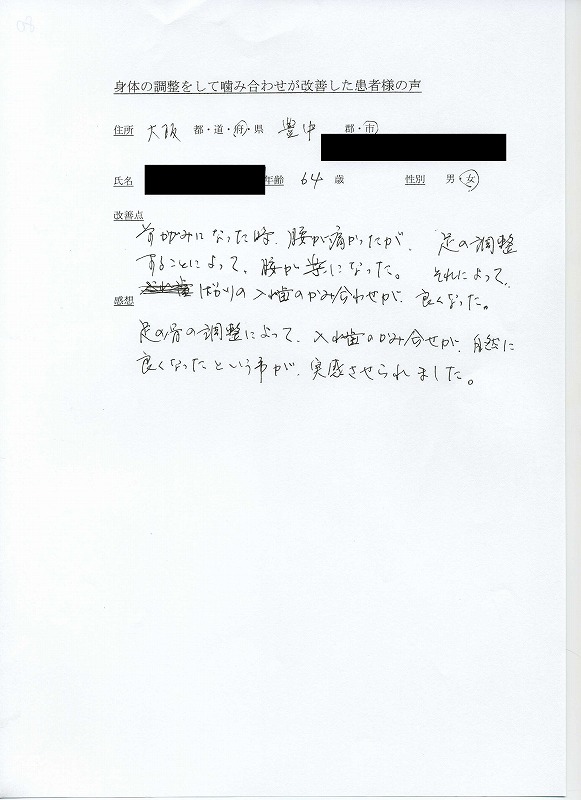 身体の調整をして噛み合わせが改善した患者様の声
住所 大阪 都・道・府・県 豊中 郡・市
氏名 年齢 64 歳 性別 男・女
改善点
前かがみになった時、腰が痛かったが、足の調整
することによって、腰が楽になった。それによって、
ばかりの入れ歯のかみ合わせが、良くなった。
感想
足の骨の調整によって、入れ歯のかみ合せが、自然に
良くなったという事が、実感させられました。